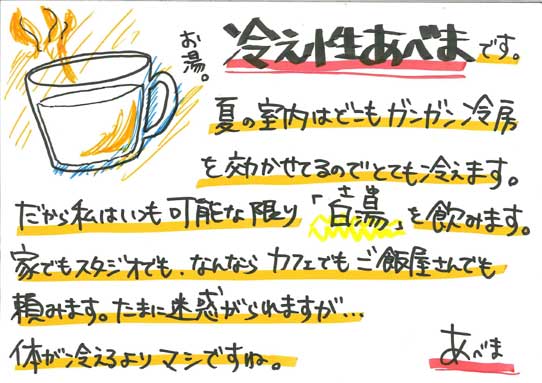 冷え性あべまです。
お湯。
夏の室内はどこもガンガン冷房
を効かせてるのでとても冷えます。
だから私はいつも可能な限り「白湯」を飲みます。
家でもスタジオでも、なんなら カフェでもご飯屋さんでも
頼みます。たまに迷惑がられますが…
体が冷えるよりマシですね。
あべま